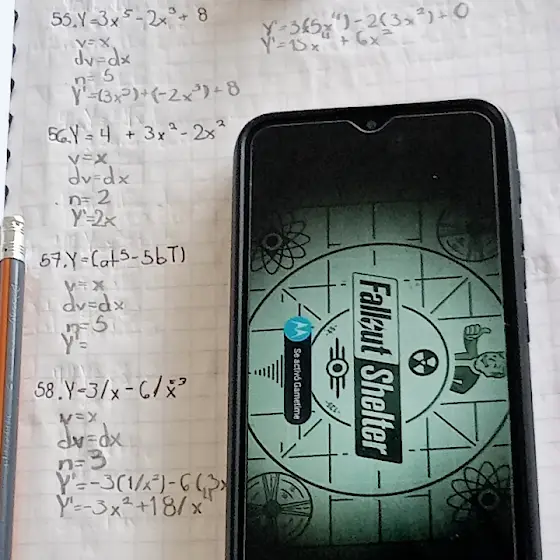 55. Y=3x⁵-2x³+8
v=x
dv=dx
n=5
Y'=(3x⁵)+(-2x³)+8
Y'=3(5x⁴)-2(3x²)+0
Y'=15x⁴+6x²
56. Y=4+3x²-2x²
v=x
dv=dx
n=2
Y'=2x
57. Y=(at⁵-5bT)
v=x
dv=dx
n=5
Y'=
58. Y=3/x-6/x³
v=x
dv=dx
n=3
Y'=-3(1/x²)-6(3x
Y'=-3x²+18/x⁴
Fallout Shelter
Se activó Gametime